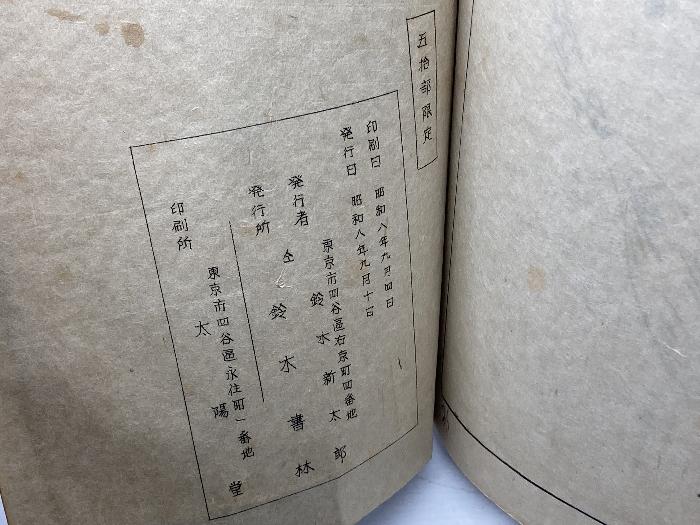 五拾部限定
印刷日 昭和八年九月四日
発行日 昭和八年九月十日
東京市四谷區右京町四番地
発行者 鈴木新太郎
発行所 仝 鈴木書林
東京市四谷區永住町一番地
印刷所 太陽堂